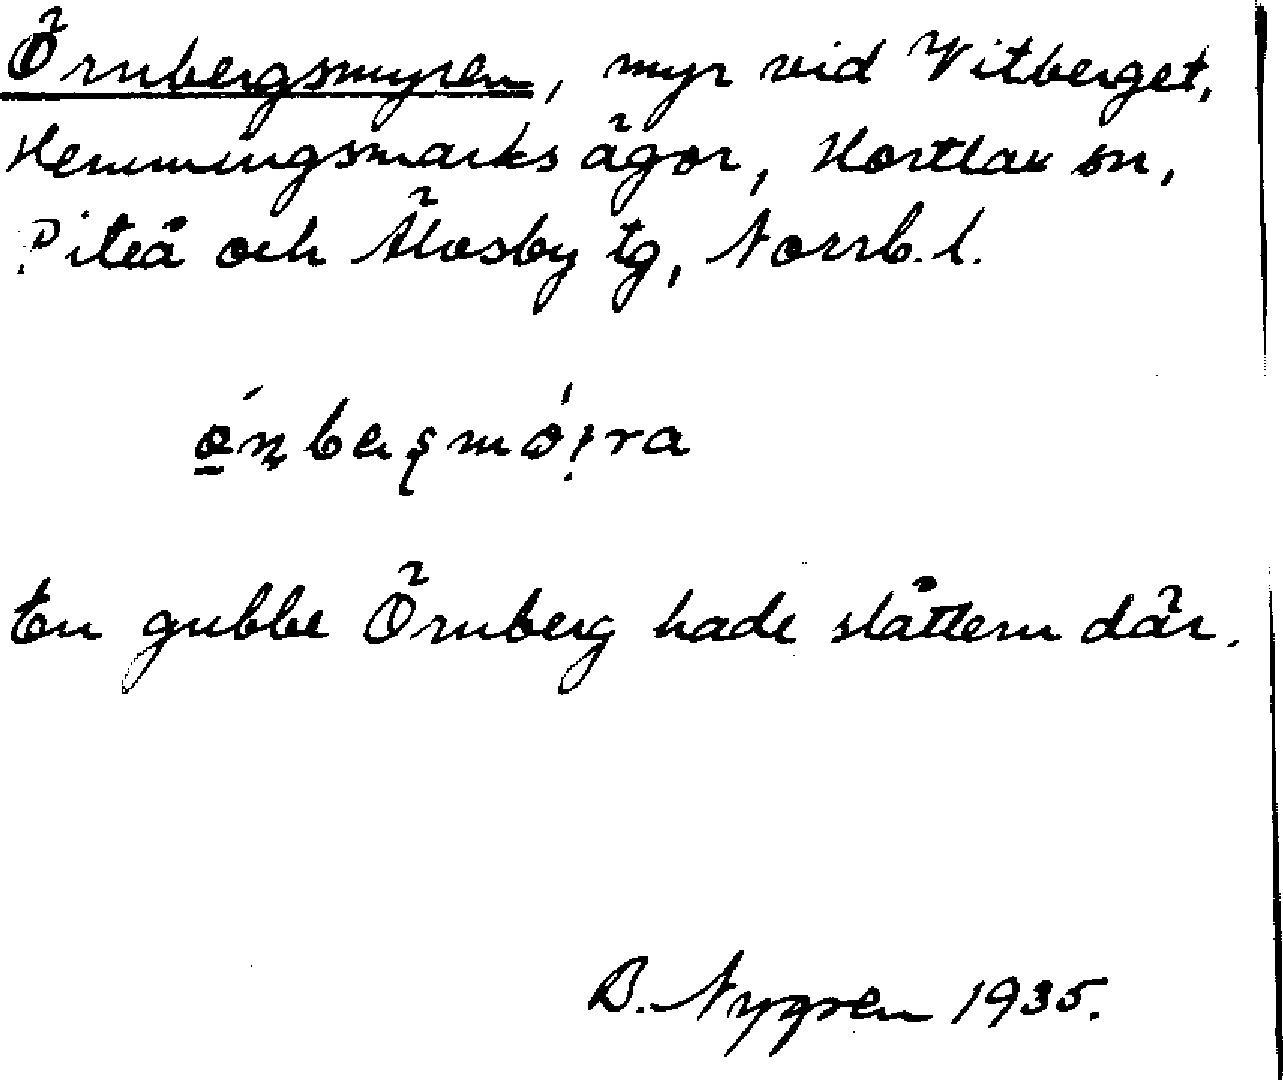 Örnbergsmyren, myr vid Vitberget,
Hemmingsmarks ägor, Hortlax sn,
Piteå och Älvsby tg, Norrb. l.
En gubbe Örnberg hade slåttern där.
B. Nygren 1935.